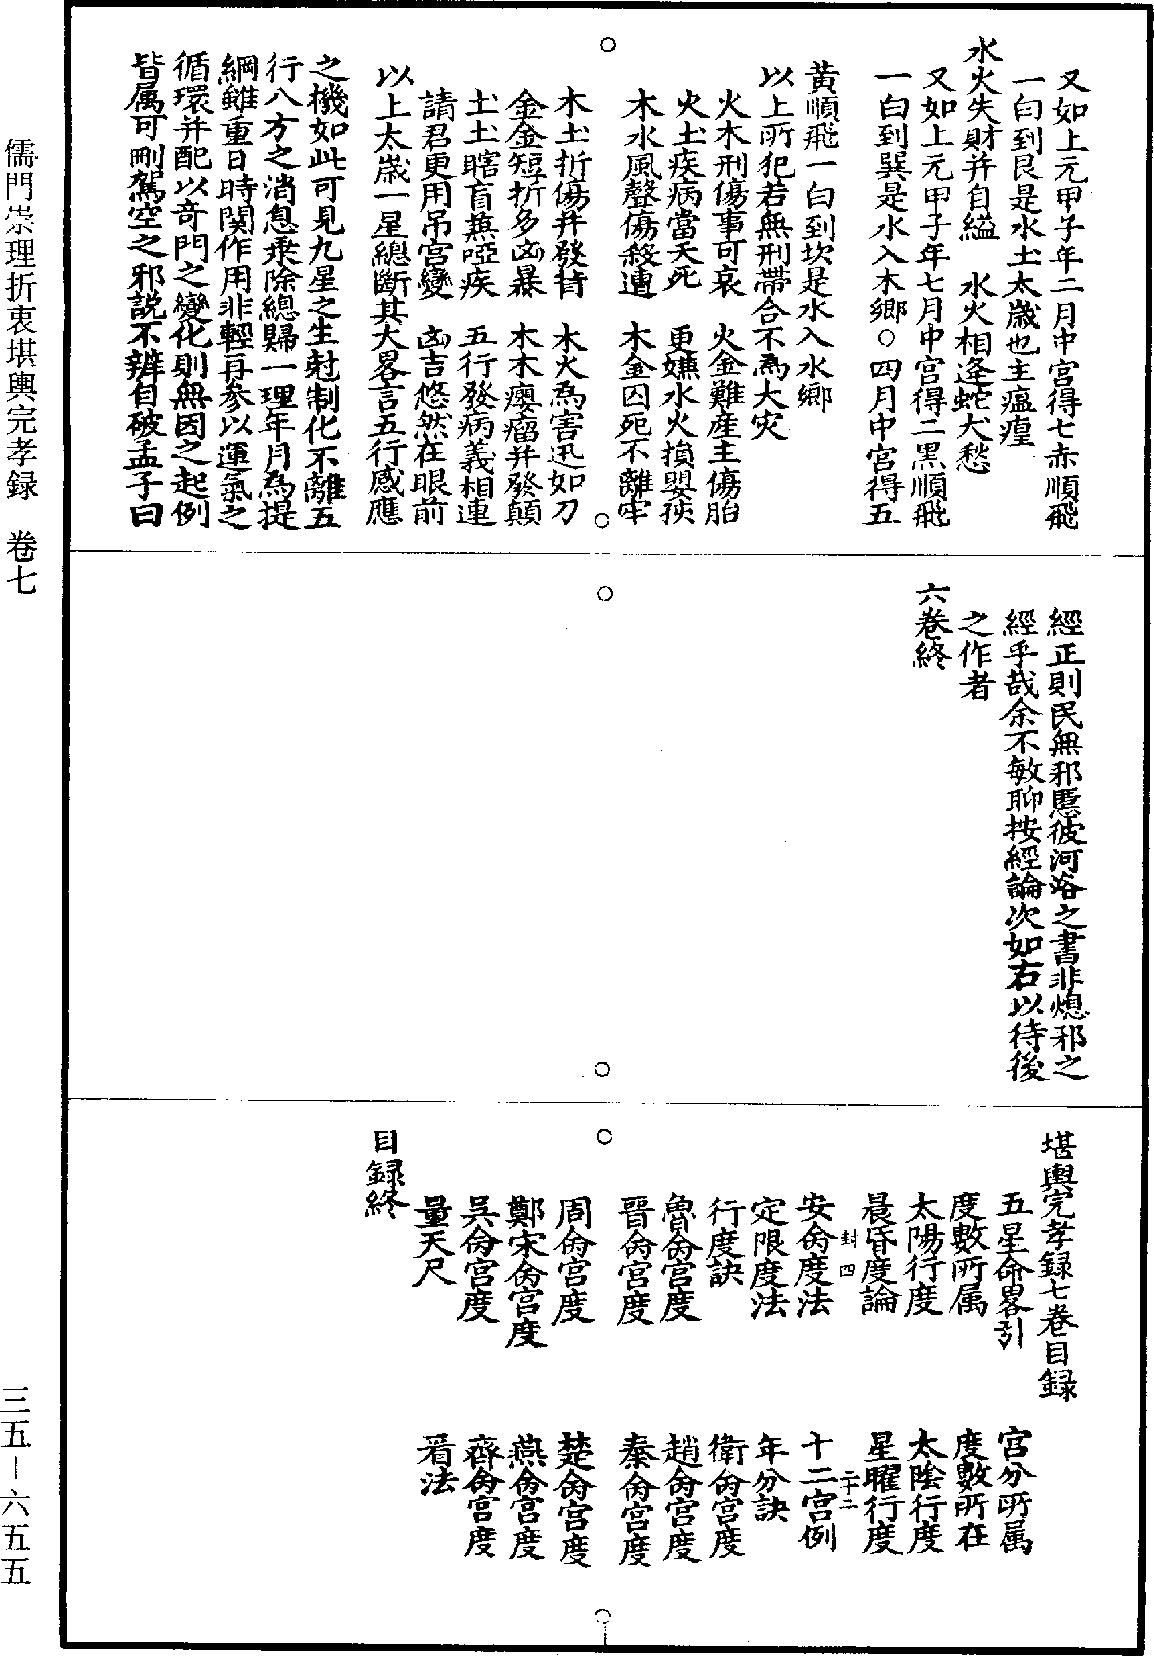 又如上元甲子年二月中宮得七赤順飛
一白到艮是水土太歲也主瘟瘽
水火失財并自縊　水火相逢蛇犬愁
又如上元甲子年七月中宮得二黑順飛
一白到巽是水入木鄉○四月中宮得五
黃順飛一白到坎是水入水鄉
以上所犯若無刑帶合不為大灾
火木刑傷事可哀　火金難産主傷胎
火土疾病當夭死　更嫌水火損嬰孩
木水風聲傷殺遭　木金囚死不離牢
木土折傷并發背　木火為害迅如刀
金金短折多凶暴　木木癭瘤并發顛
土土瞎盲無啞疾　五行發病義相連
請君更用吊宮變　凶吉悠然在眼前
以上太歲一星總斷其大畧言五行感應
之機如此可見九星之生尅制化不離五
行八方之消息乘除總歸一理年月為提
綱雖重日時関作用非輕再參以運氣之
循環并配以奇門之變化則無因之起例
皆属可刪駕空之邪説不辨自破孟子曰
經正則民無邪慝彼河洛之書非熄邪之
經乎哉余不敏聊按經論次如右以待後
之作者
六卷終
堪輿完孝録七卷目録
五星命畧引　宮分所属
度數所属　度數所在
太陽行度　太陰行度
晨昏度論　星曜行度
封四　二十二
安命度法　十二宮例
定限度法　年分訣
行度訣　衛命宮度
魯命宮度　趙命宮度
晉命宮度　秦命宮度
周命宮度　楚命宮度
鄭宋命宮度　燕命宮度
吳命宮度　齊命宮度
量天尺　看法
目録終
儒門崇理折衷堪輿完孝録　卷七
三五－六五五